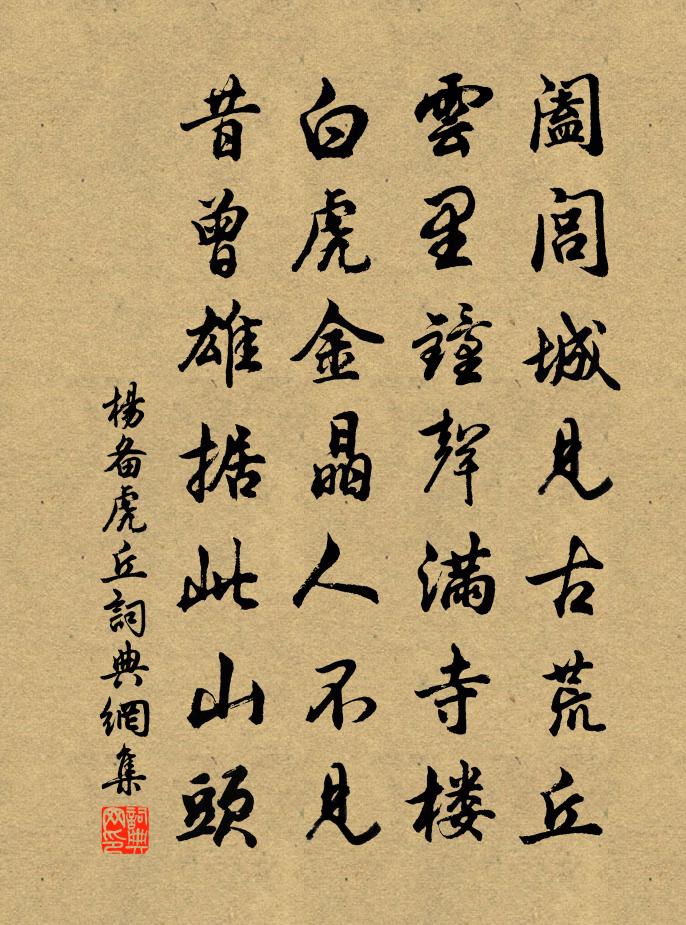 闔閭城見古荒丘
雲里鐘聲滿寺楼
白虎金晶人不見
昔曾雄据此山頭
楊备虎丘詞典網集
詞典网印